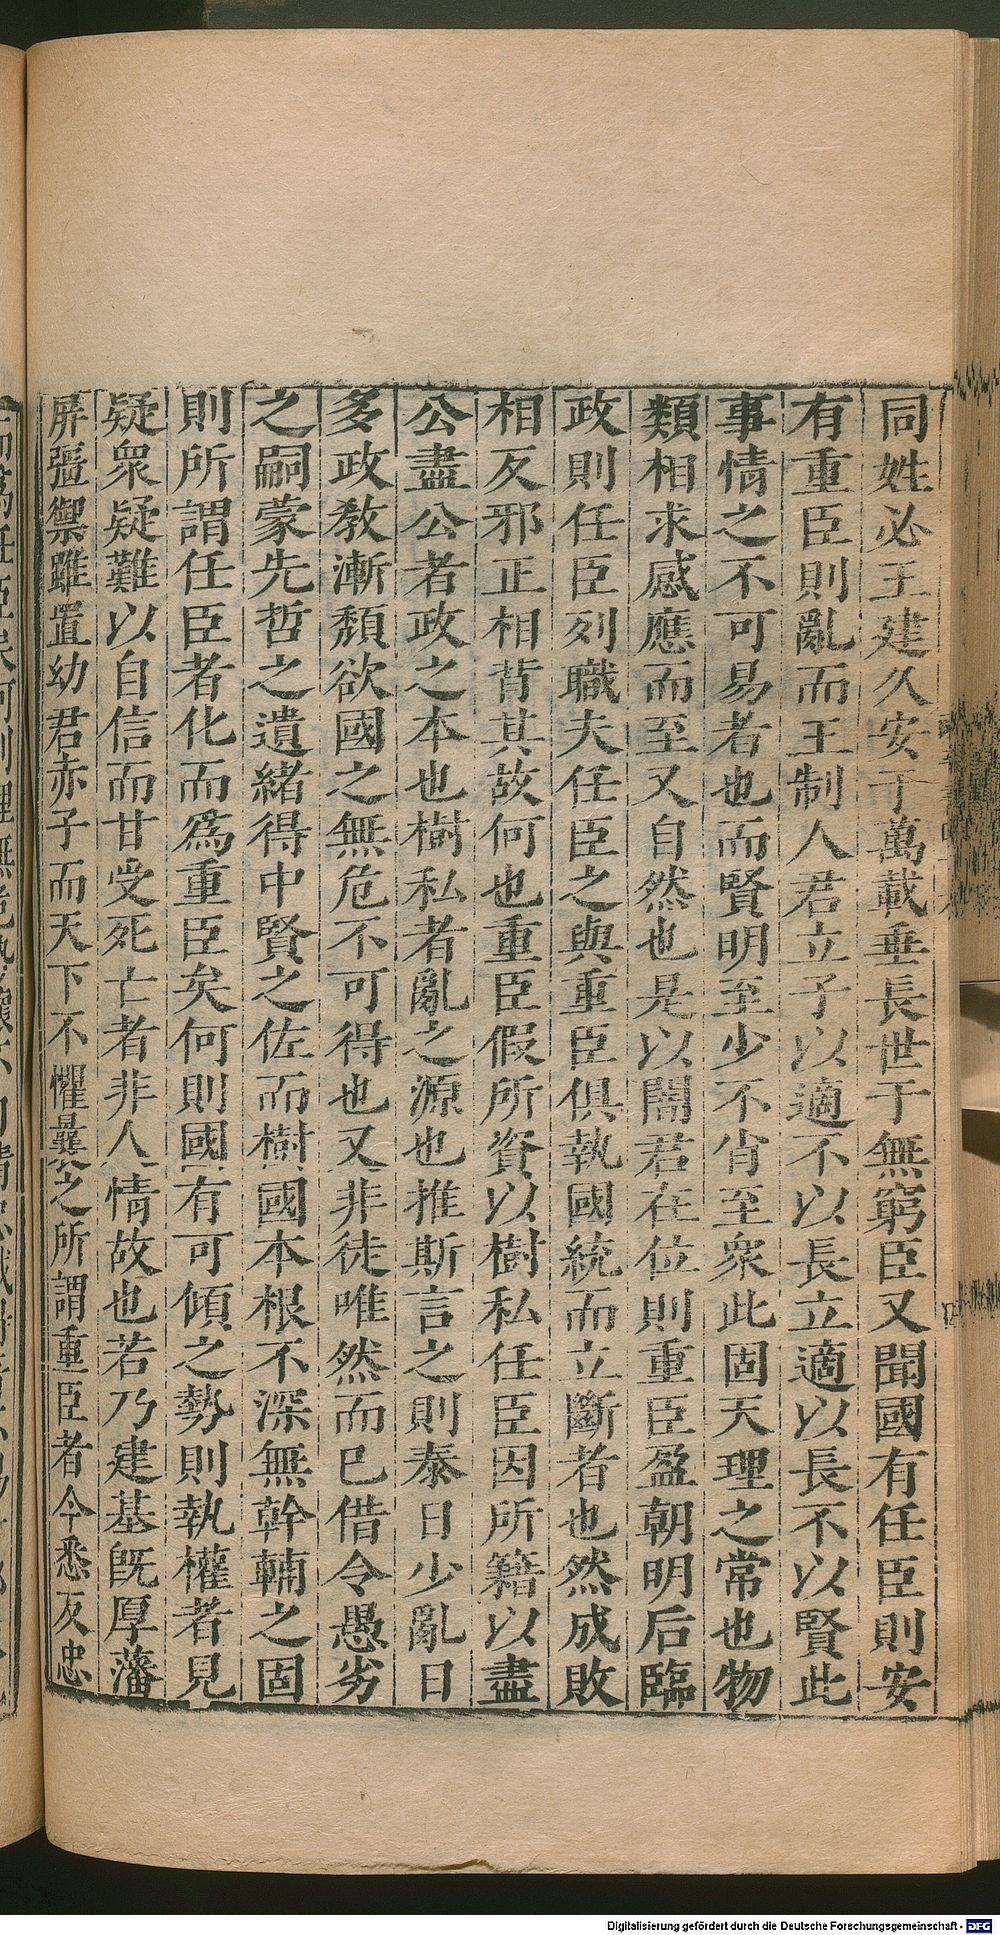 同姓必王建久安于萬載垂長世于無窮臣又聞國有任臣則安
有重臣則亂而王制人君立子以適不以長立適以長不以賢此
事情之不可易者也而賢明至少不肖至衆此固天理之常也物
類相求感應而至又自然也是以闇君在位則重臣盈朝明后臨
政則任臣列職夫任臣之與重臣俱執國統而立斷者也然成敗
相反邪正相背其故何也重臣假所資以樹私任臣因所籍以盡
公盡公者政之本也樹私者亂之源也推斯言之則泰日少亂日
多政教漸頹欲國之無危不可得也又非徒唯然而巳借令愚劣
之嗣蒙先哲之遺緒得中賢之佐而樹國本根不深無幹輔之固
則所謂任臣者化而爲重臣矣何則國有可傾之勢則執權者見
疑衆疑難以自信而甘受死亡者非人情故也若乃建基旣厚藩
屏彊禦雖置幼君赤子而天下不懼曩之所謂重臣者今悉反忠
Digitalisierung gefördert durch die Deutsche Forschungsgemeinschaft - DFG